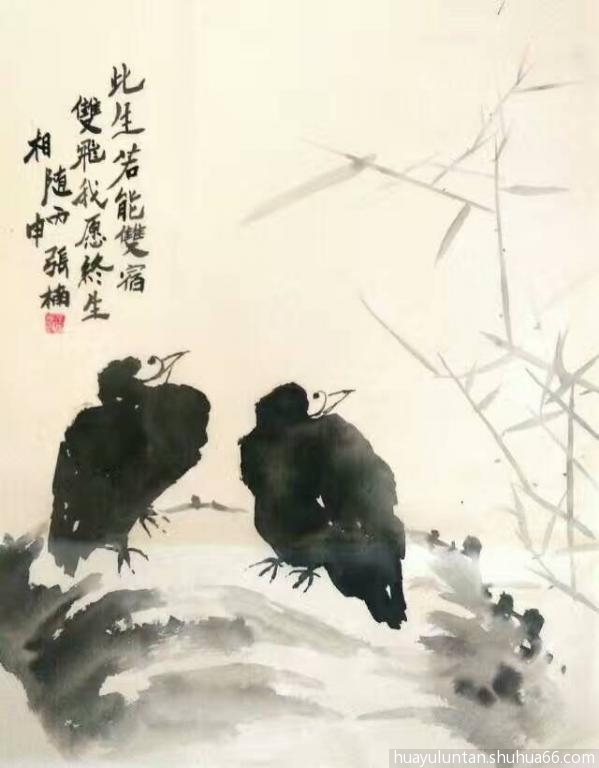 此生若能雙宿
雙飛我愿終生
相随丙申張楠
huayuluntan.shuhua66.com